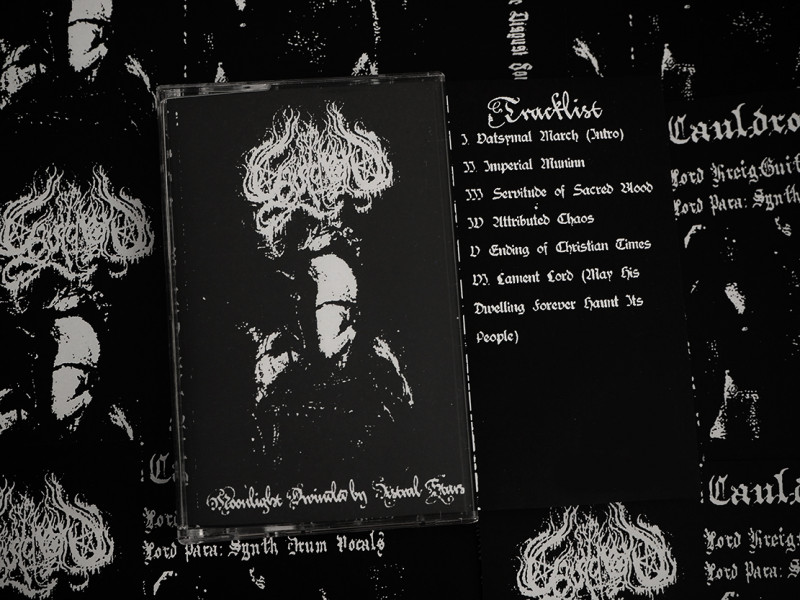 Moonlight by Astral Tears
Tracklist
I. Vatsymal March (Intro)
II. Imperial Muninn
III Servitude of Sacred Blood
IV Attributed Chaos
V Ending of Christian Times
VI. Lament Lord (May His
Dwelling Forever Haunt Its
People)
Disgust
Cauldro
Lord Kreig:Guit
Lord Para: Synth
Lord Para: Synth Drum Vocals
Cauld
Lord Kreig:
Lord Para: S